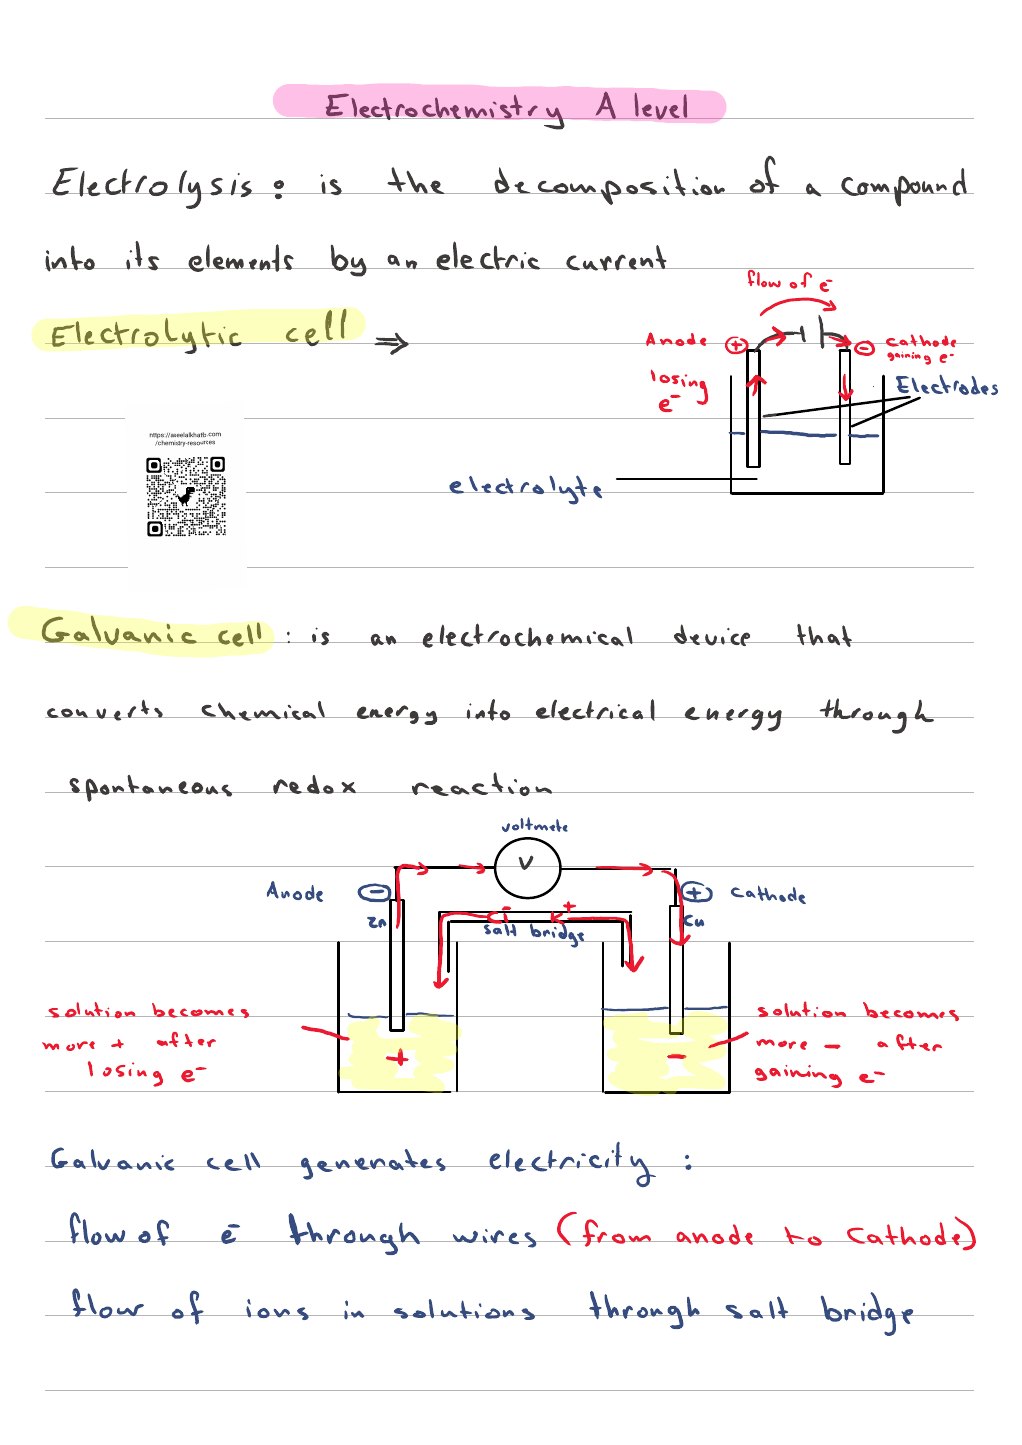 Electrochemistry A level
Electrolysis: is the decomposition of a compound
into its elements by an electric current
Electrolytic cell ⇒
flow of e⁻
Anode
+
−
cathode
gaining e⁻
losing
e⁻
Electrodes
electrolyte
https://aseelalkhatb.com
/chemistry-resources
Galvanic cell: is an electrochemical device that
converts chemical energy into electrical energy through
spontaneous redox reaction
voltmete
V
Anode
−
+
cathode
Zn
Cu
-
+
salt bridge
solution becomes
more + after
losing e⁻
+
−
solution becomes
more − after
gaining e⁻
Galvanic cell generates electricity:
flow of e⁻ through wires (from anode to cathode)
flow of ions in solutions through salt bridge